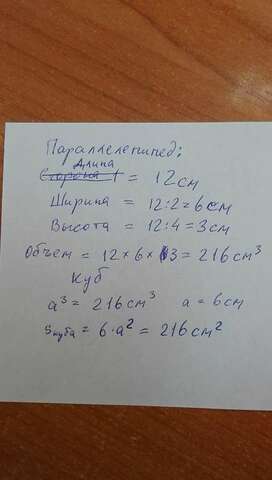 Параллелепипед:
Длина
Сторона 1 = 12 см
Ширина = 12:2=6 см
Высота = 12:4=3 см
Объем = 12 × 6 × 3 = 216 см³
Куб
a³ = 216 см³ a = 6 см
S куба = 6·a² = 216 см²